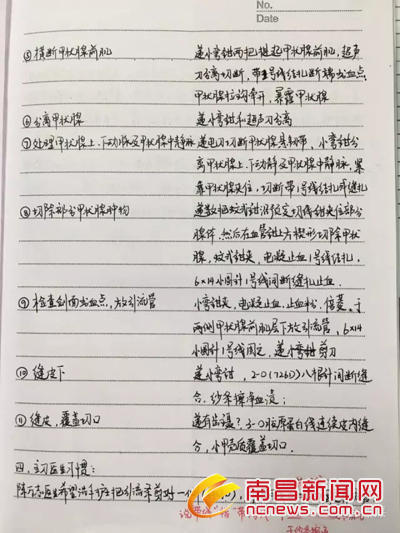 No.
Date
⑤横断甲状腺前肌 递小弯钳两把提起甲状腺前肌，超声
刀分离切断，带1号线结扎断端出血点
甲状腺拉钩牵开，暴露甲状腺
⑥分离甲状腺 递小弯钳和超声刀分离
⑦处理甲状腺上、下动静脉及甲状腺中静脉 递电刀切断甲状腺悬韧带，小弯钳分
离甲状腺上、下动静及甲状腺中静脉，紧
靠甲状腺夹住，切断带1号线结扎或缝扎
⑧切除部分甲状腺肿物 递数把蚊式钳沿预定切线钳夹住部分
腺体，然后在血管钳上方楔形切除甲状
腺，蚊式钳夹，电凝止血1号线结扎，
6×14小圆针1号线间断缝扎止血
⑨检查创面出血点，放引流管 小弯钳夹，电凝止血、止血粉、倍菱，于
两侧甲状腺前肌层下放引流管，6×14
小圆针1号线固定，递小弯钳剪刀
⑩缝皮下 递小弯钳，2-0(726D)八根针间断缝
合，纱布擦净血渍；
⑪缝皮，覆盖切口 3-0胶原蛋白线连续皮内缝
合，小甲壳质覆盖切口.
四、主刀医生习惯：
医生希望洗手护士把引流管剪对一
南昌新闻网
www.ncnews.com.cn